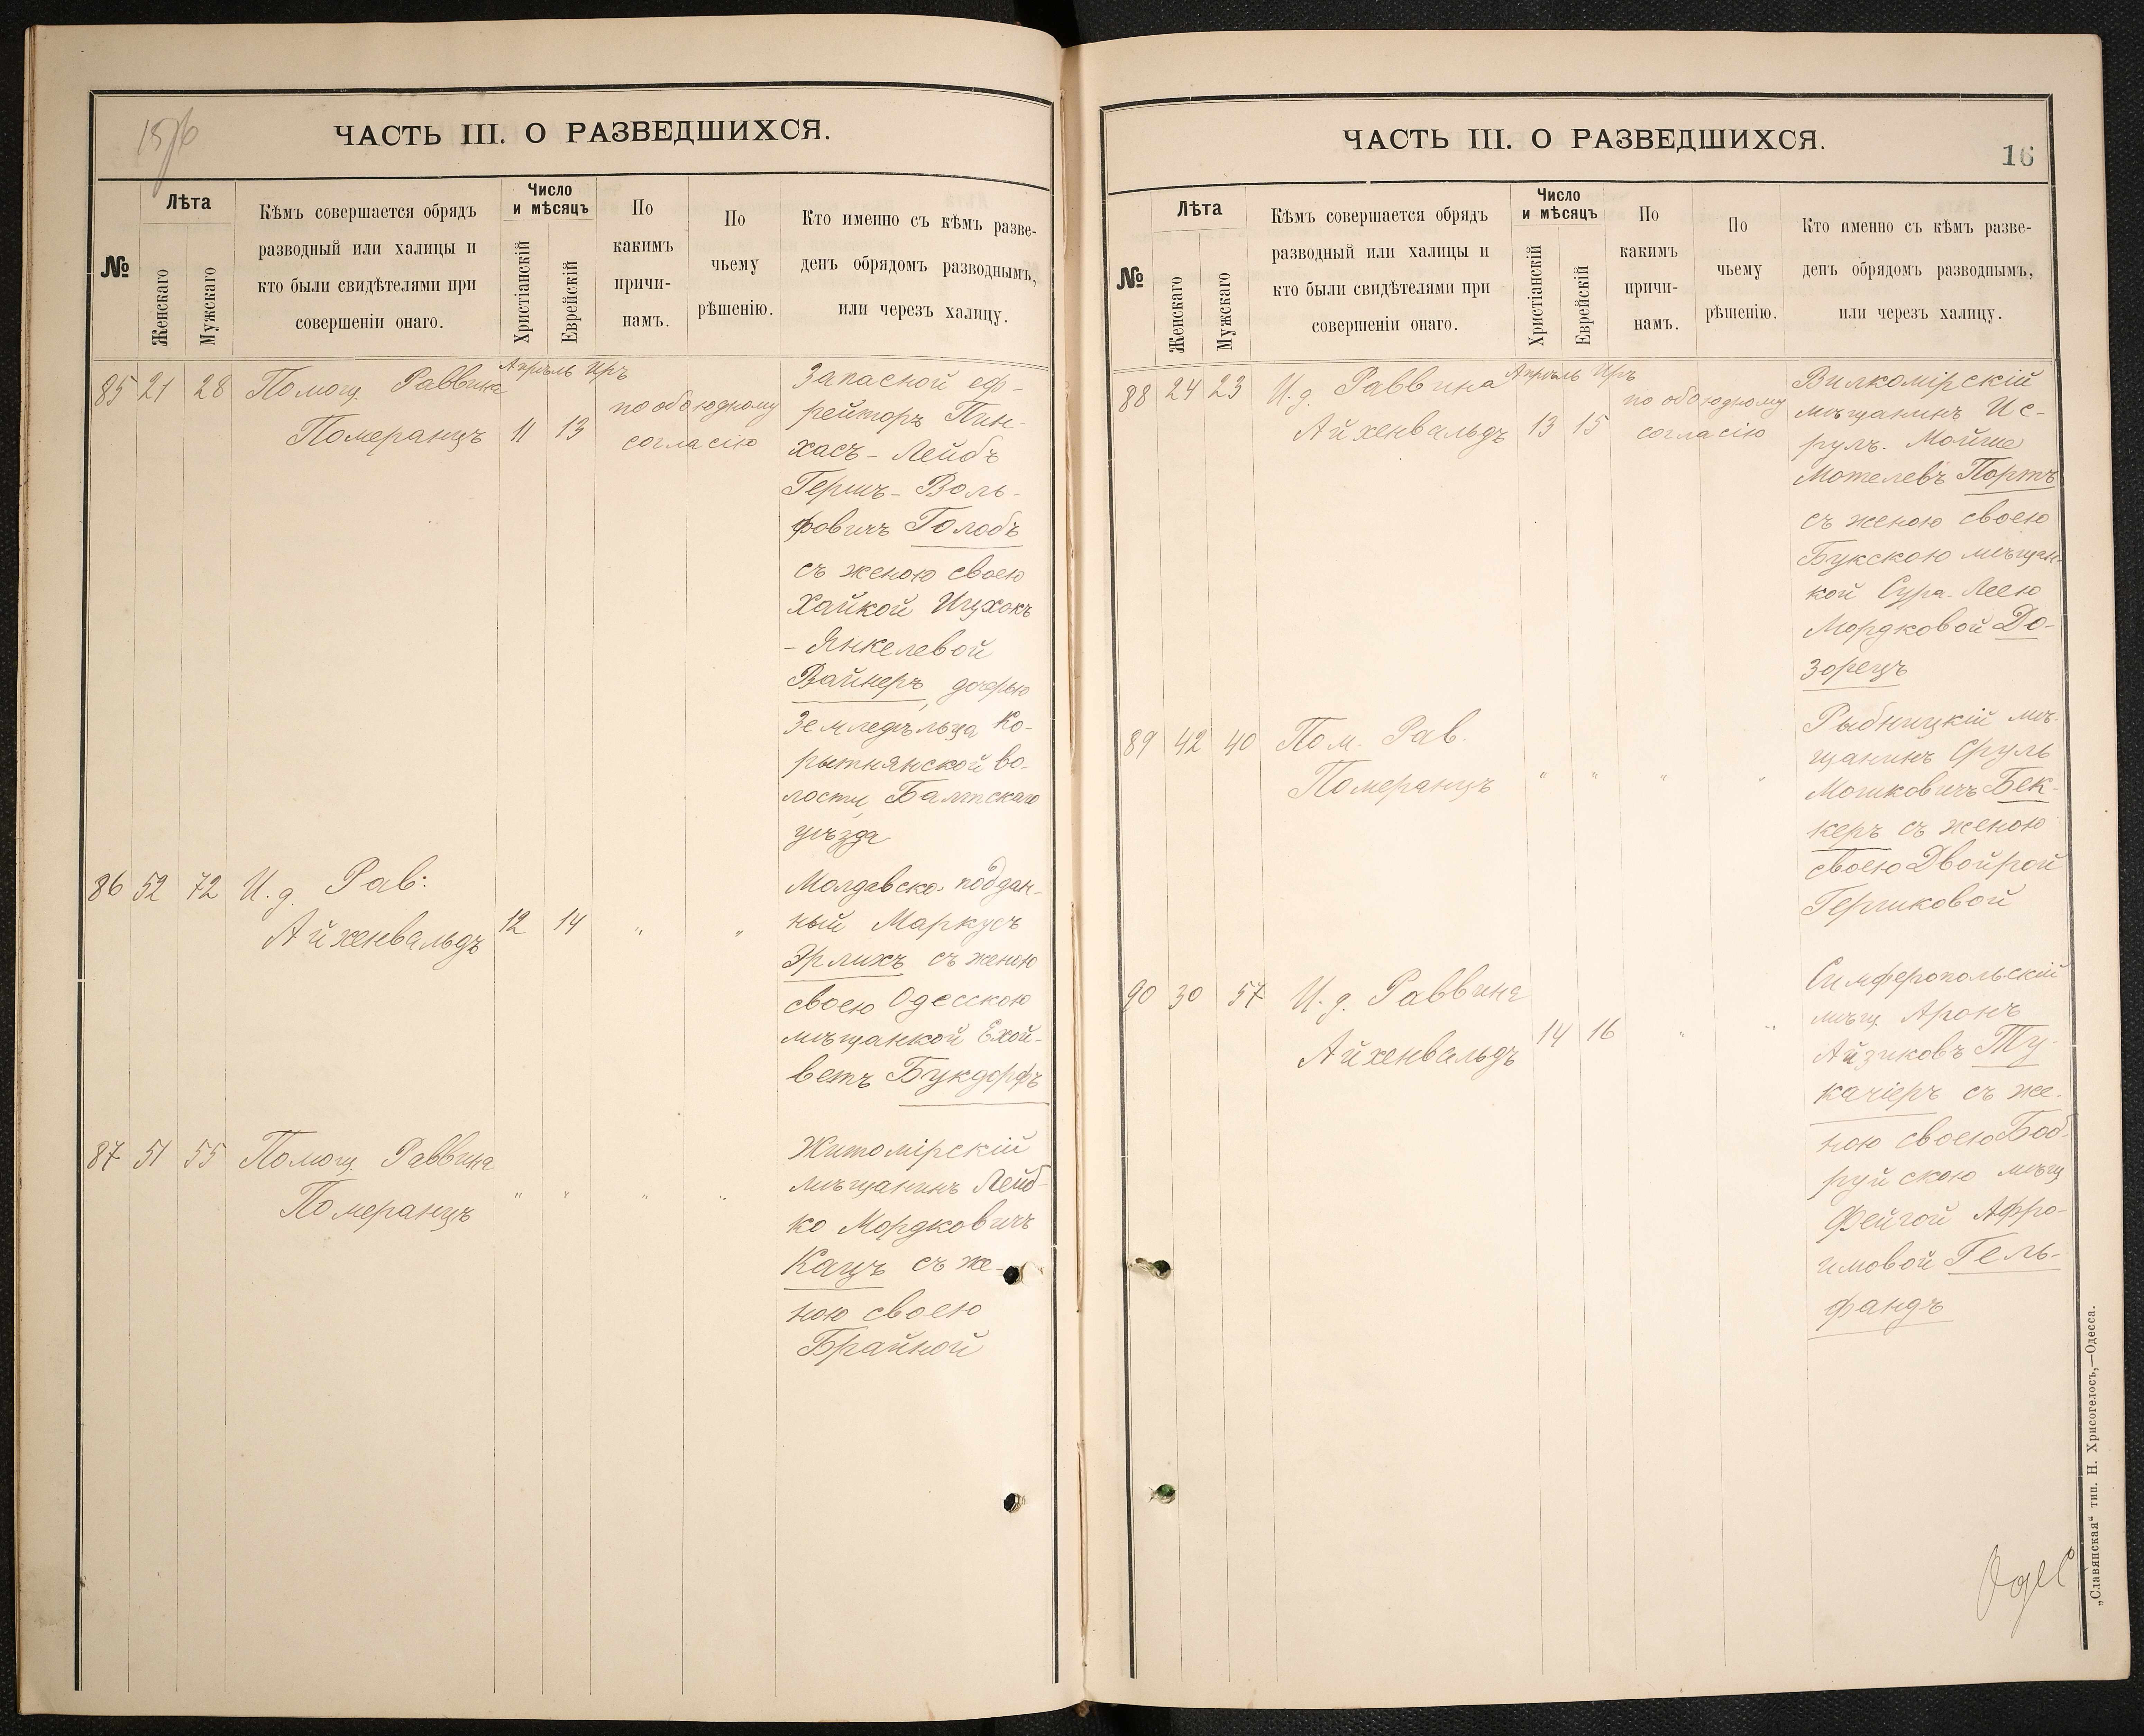 ЧАСТЬ III. О РАЗВЕДШИХСЯ.
№
Лѣта
Женскаго
Мужскаго
Кѣмъ совершается обрядъ
разводный или халицы и
кто были свидѣтелями при
совершеніи онаго.
Число
и мѣсяцъ
Христіанскій
Еврейскій
По
какимъ
причи-
намъ.
По
чьему
рѣшенію.
Кто именно съ кѣмъ разве-
денъ обрядомъ разводнымъ,
или черезъ халицу.
85 21 28 Помощ. Раввина
Померанцъ
Апрѣль Иръ
11 13
по обоюдному
согласію
Запасной еф-
рейторъ Пин-
хасъ-Лейбъ
Гершъ-Воль-
фовичъ Голобъ
съ женою своею
Хайкой Ицхокъ
-Янкелевой
Вайнеръ, дочерью
Земледѣльца Ко-
рытнянской во-
лости, Балтскаго
уѣзда
86 52 72 И. д. Рав:
Айхенвальдъ
12 14 " "
Молдавско-поддан-
ный Маркусъ
Эрлихъ съ женою
своею Одесскою
мѣщанкой Ехой-
ветъ Букдорфъ
87 51 55 Помощ. Раввина
Померанцъ
" " " "
Житомірскій
мѣщанинъ Лейб-
ко Мордковичъ
Кацъ съ же-
ною своею
Брайной
ЧАСТЬ III. О РАЗВЕДШИХСЯ.
16
№
Лѣта
Женскаго
Мужскаго
Кѣмъ совершается обрядъ
разводный или халицы и
кто были свидѣтелями при
совершеніи онаго.
Число
и мѣсяцъ
Христіанскій
Еврейскій
По
какимъ
причи-
намъ.
По
чьему
рѣшенію.
Кто именно съ кѣмъ разве-
денъ обрядомъ разводнымъ,
или черезъ халицу.
88 24 23 И. д. Раввина
Айхенвальдъ
Апрѣль Иръ
13 15
по обоюдному
согласію
Вилкомірскій
мѣщанинъ Ис-
руль-Мойше
Мотелевъ Портъ
съ женою своею
Букскою мѣщан-
кой Сура-Леею
Мордковой До-
зорецъ
89 42 40 Пом. Рав.
Померанцъ
" " " "
Рыбницкій мѣ-
щанинъ Сруль
Мошковичъ Бек-
керъ съ женою
своею Двойрой
Гершковой
90 30 57 И. д. Раввина
Айхенвальдъ
14 16 " "
Симферопольскій
мѣщ. Аронъ
Айзиковъ Ту-
качіеръ съ же-
ною своею Боб-
руйскою мѣщ
Фейгой Афро-
имовой Гель-
фандъ
„Славянская“ тип. Н. Хрисогелосъ,—Одесса.